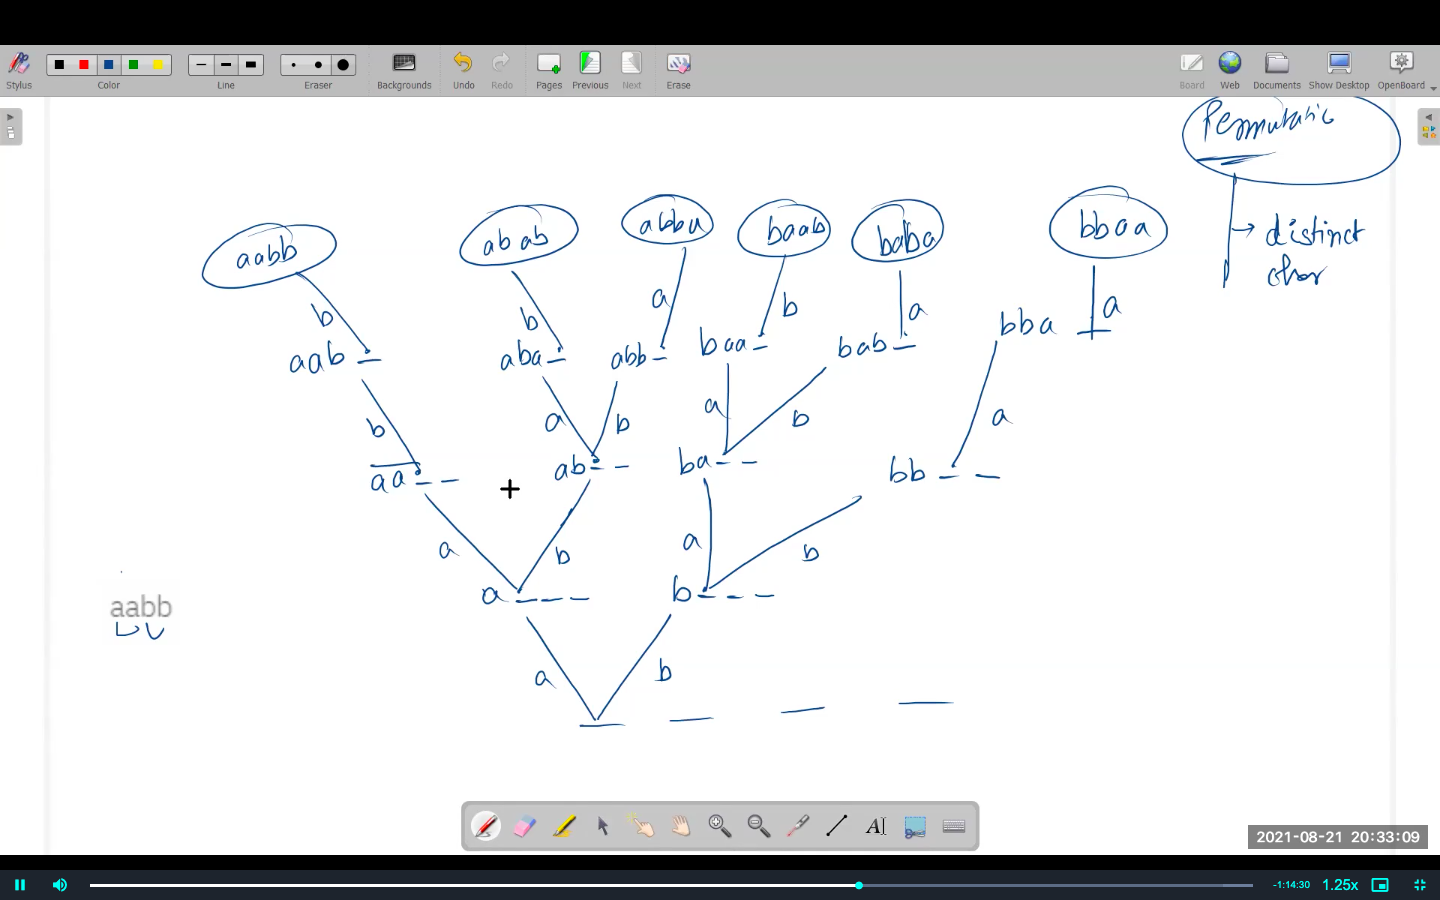 Stylus
Color
Line
Eraser
Backgrounds
Undo
Redo
Pages
Previous
Next
Erase
Board
Web
Documents
Show Desktop
OpenBoard
Permutatio
distinct
char
aabb
abab
abba
baab
baba
bbaa
b
b
a
b
a
a
aab _
aba _
abb _
baa _
bab _
bba _
b
a
b
a
b
a
aa _ _
ab _ _
ba _ _
bb _ _
a
b
a
b
a _ _ _
b _ _ _
aabb
a
b
_ _ _ _
AI
2021-08-21 20:33:09
-1:14:30
1.25x